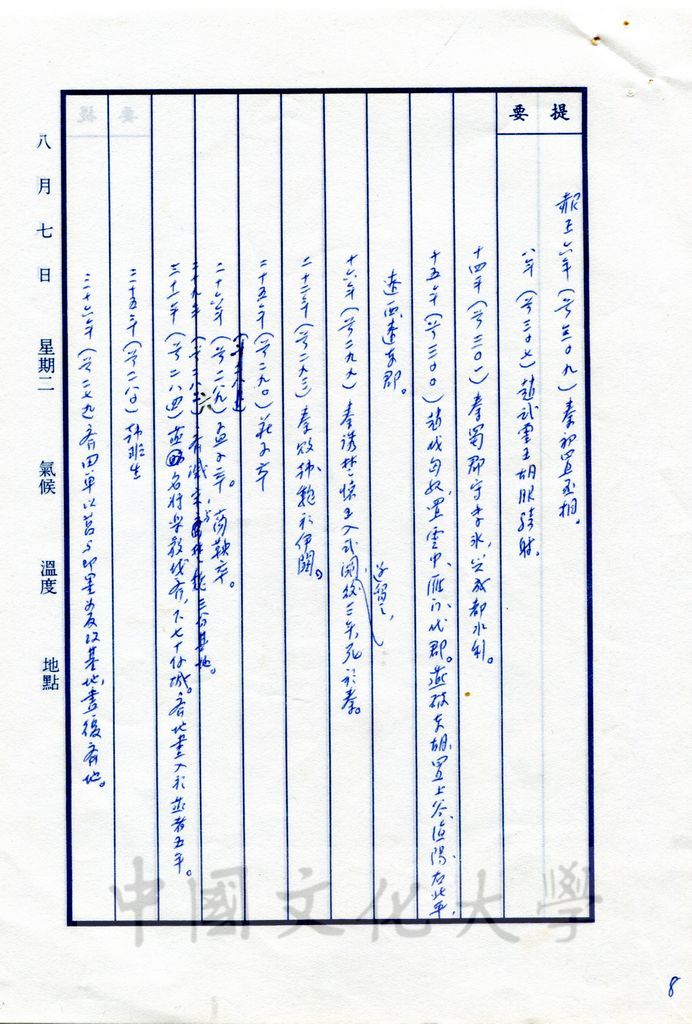 提要
赧王六年(前三〇九)秦初置丞相。
八年(前三〇七)趙武靈王胡服騎射。
十四年(前三〇一)秦蜀郡守李冰,興成都水利。
十五年(前三〇〇)趙伐匈奴,置雲中、雁门、代郡。燕破東胡,置上谷、漁陽、右北平、
遼西、遼東郡。
十六年(前二九九)秦誘楚懷王入武關,後三年,死於秦。
二十二年(前二九三)秦敗韓、魏於伊闕。
二十五年(前二九〇)莊子卒
二十六年(前二八九)孟子卒。商鞅卒。
二十九年(前二八六)齊滅宋,與楚、魏三分其地。
三十一年(前二八四)燕名将樂毅伐齊,下七十餘城。齊地盡入於燕者五年。
三十五年(前二八〇)韓非生
三十六年(前二七九)齊田單以莒与即墨反攻,盡復齊地。
八月七日 星期二 氣候 溫度 地點
中國文化大學
8